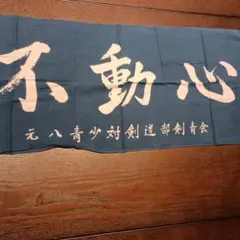 不動心
元八青少対剣道部剣育会